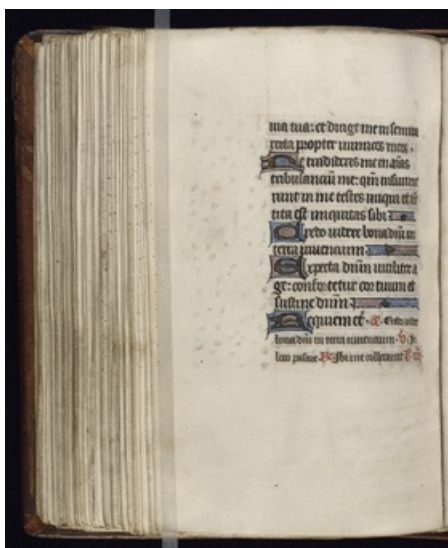 uia tua: et dirige me in semita
recta propter inimicos meos.
Ne tradideris me in aīas
tribulanciū me: qm̄ insurrexe
runt in me testes iniqui et mē
tita est iniquitas sibi
Credo uidere bona dn̄i in
terra uiuencium
Expecta dn̄m uiriliter a
ge: confortetur cor tuum et
sustine dn̄m
Requiem et̄. a. Credo uide
bona dn̄i in terra uiuencium. v. In
loco pascue R. Ibi me collocauit